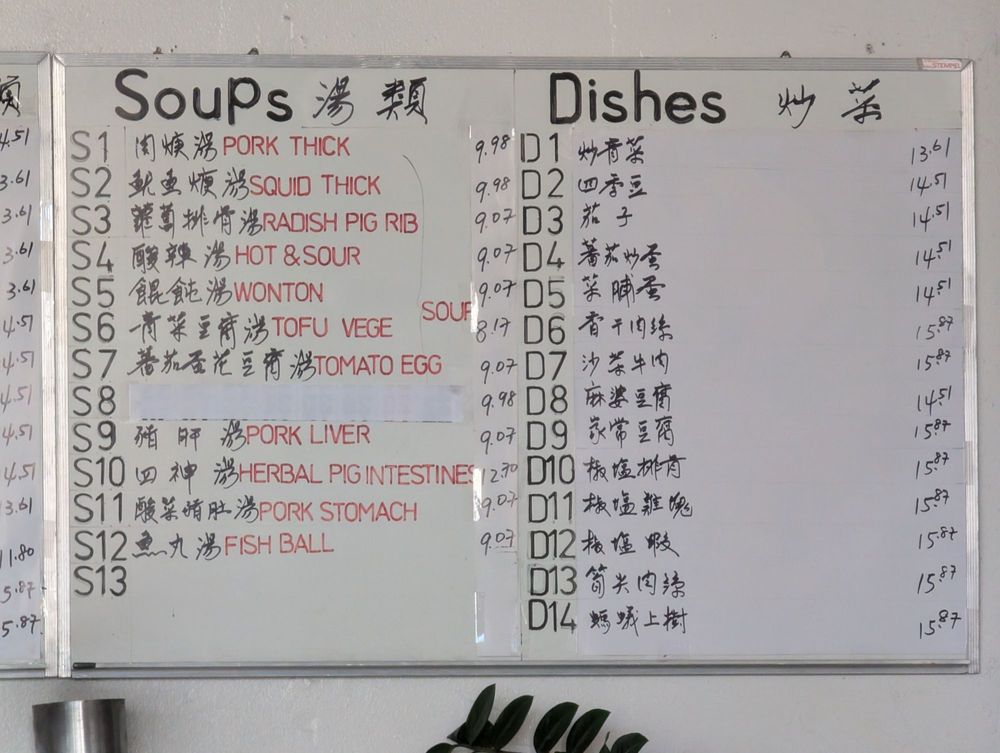 4.51
3.61
3.61
3.61
3.61
4.51
4.51
4.51
4.51
4.51
3.61
11.80
5.87
5.87
Soups 湯 類
S1 肉焿湯 PORK THICK 9.98
S2 魷魚焿湯 SQUID THICK 9.98
S3 蘿蔔排骨湯 RADISH PIG RIB 9.07
S4 酸辣湯 HOT & SOUR 9.07
S5 餛飩湯 WONTON 9.07
SOUP
S6 青菜豆腐湯 TOFU VEGE 8.17
S7 蕃茄蛋花豆腐湯 TOMATO EGG 9.07
S8 9.98
S9 豬肝湯 PORK LIVER 9.07
S10 四神湯 HERBAL PIG INTESTINES 12.70
S11 酸菜豬肚湯 PORK STOMACH 9.07
S12 魚丸湯 FISH BALL 9.07
S13
STEMPEL
Dishes 炒 菜
D1 炒青菜 13.61
D2 四季豆 14.51
D3 茄子 14.51
D4 蕃茄炒蛋 14.51
D5 菜脯蛋 14.51
D6 香干肉絲 15.87
D7 沙茶牛肉 15.87
D8 麻婆豆腐 14.51
D9 家常豆腐 15.87
D10 椒塩排骨 15.87
D11 椒塩雞塊 15.87
D12 椒塩蝦 15.87
D13 筍尖肉絲 15.87
D14 螞蟻上樹 15.87